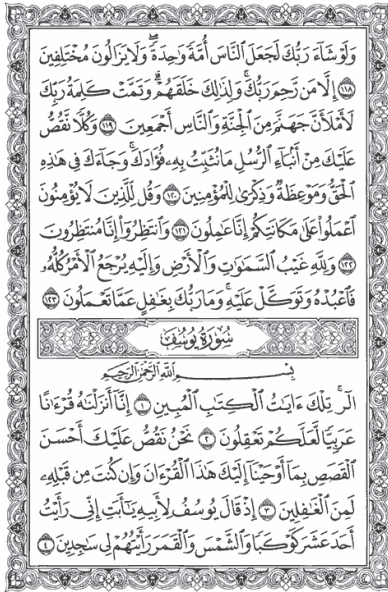 وَلَوْ شَآءَ رَبُّكَ لَجَعَلَ ٱلنَّاسَ أُمَّةً وَٰحِدَةً ۖ وَلَا يَزَالُونَ مُخْتَلِفِينَ
١١٨ إِلَّا مَن رَّحِمَ رَبُّكَ ۚ وَلِذَٰلِكَ خَلَقَهُمْ ۗ وَتَمَّتْ كَلِمَةُ رَبِّكَ
لَأَمْلَأَنَّ جَهَنَّمَ مِنَ ٱلْجِنَّةِ وَٱلنَّاسِ أَجْمَعِينَ ١١٩ وَكُلًّا نَّقُصُّ
عَلَيْكَ مِنْ أَنۢبَآءِ ٱلرُّسُلِ مَا نُثَبِّتُ بِهِۦ فُؤَادَكَ ۚ وَجَآءَكَ فِى هَٰذِهِ
ٱلْحَقُّ وَمَوْعِظَةٌ وَذِكْرَىٰ لِلْمُؤْمِنِينَ ١٢٠ وَقُل لِّلَّذِينَ لَا يُؤْمِنُونَ
ٱعْمَلُوا۟ عَلَىٰ مَكَانَتِكُمْ إِنَّا عَٰمِلُونَ ١٢١ وَٱنتَظِرُوٓا۟ إِنَّا مُنتَظِرُونَ
١٢٢ وَلِلَّهِ غَيْبُ ٱلسَّمَٰوَٰتِ وَٱلْأَرْضِ وَإِلَيْهِ يُرْجَعُ ٱلْأَمْرُ كُلُّهُۥ
فَٱعْبُدْهُ وَتَوَكَّلْ عَلَيْهِ ۚ وَمَا رَبُّكَ بِغَٰفِلٍ عَمَّا تَعْمَلُونَ ١٢٣
سُورَةُ يُوسُفَ
بِسْمِ ٱللَّهِ ٱلرَّحْمَٰنِ ٱلرَّحِيمِ
الٓر ۚ تِلْكَ ءَايَٰتُ ٱلْكِتَٰبِ ٱلْمُبِينِ ١ إِنَّآ أَنزَلْنَٰهُ قُرْءَٰنًا
عَرَبِيًّا لَّعَلَّكُمْ تَعْقِلُونَ ٢ نَحْنُ نَقُصُّ عَلَيْكَ أَحْسَنَ
ٱلْقَصَصِ بِمَآ أَوْحَيْنَآ إِلَيْكَ هَٰذَا ٱلْقُرْءَانَ وَإِن كُنتَ مِن قَبْلِهِۦ
لَمِنَ ٱلْغَٰفِلِينَ ٣ إِذْ قَالَ يُوسُفُ لِأَبِيهِ يَٰٓأَبَتِ إِنِّى رَأَيْتُ
أَحَدَ عَشَرَ كَوْكَبًا وَٱلشَّمْسَ وَٱلْقَمَرَ رَأَيْتُهُمْ لِى سَٰجِدِينَ ٤